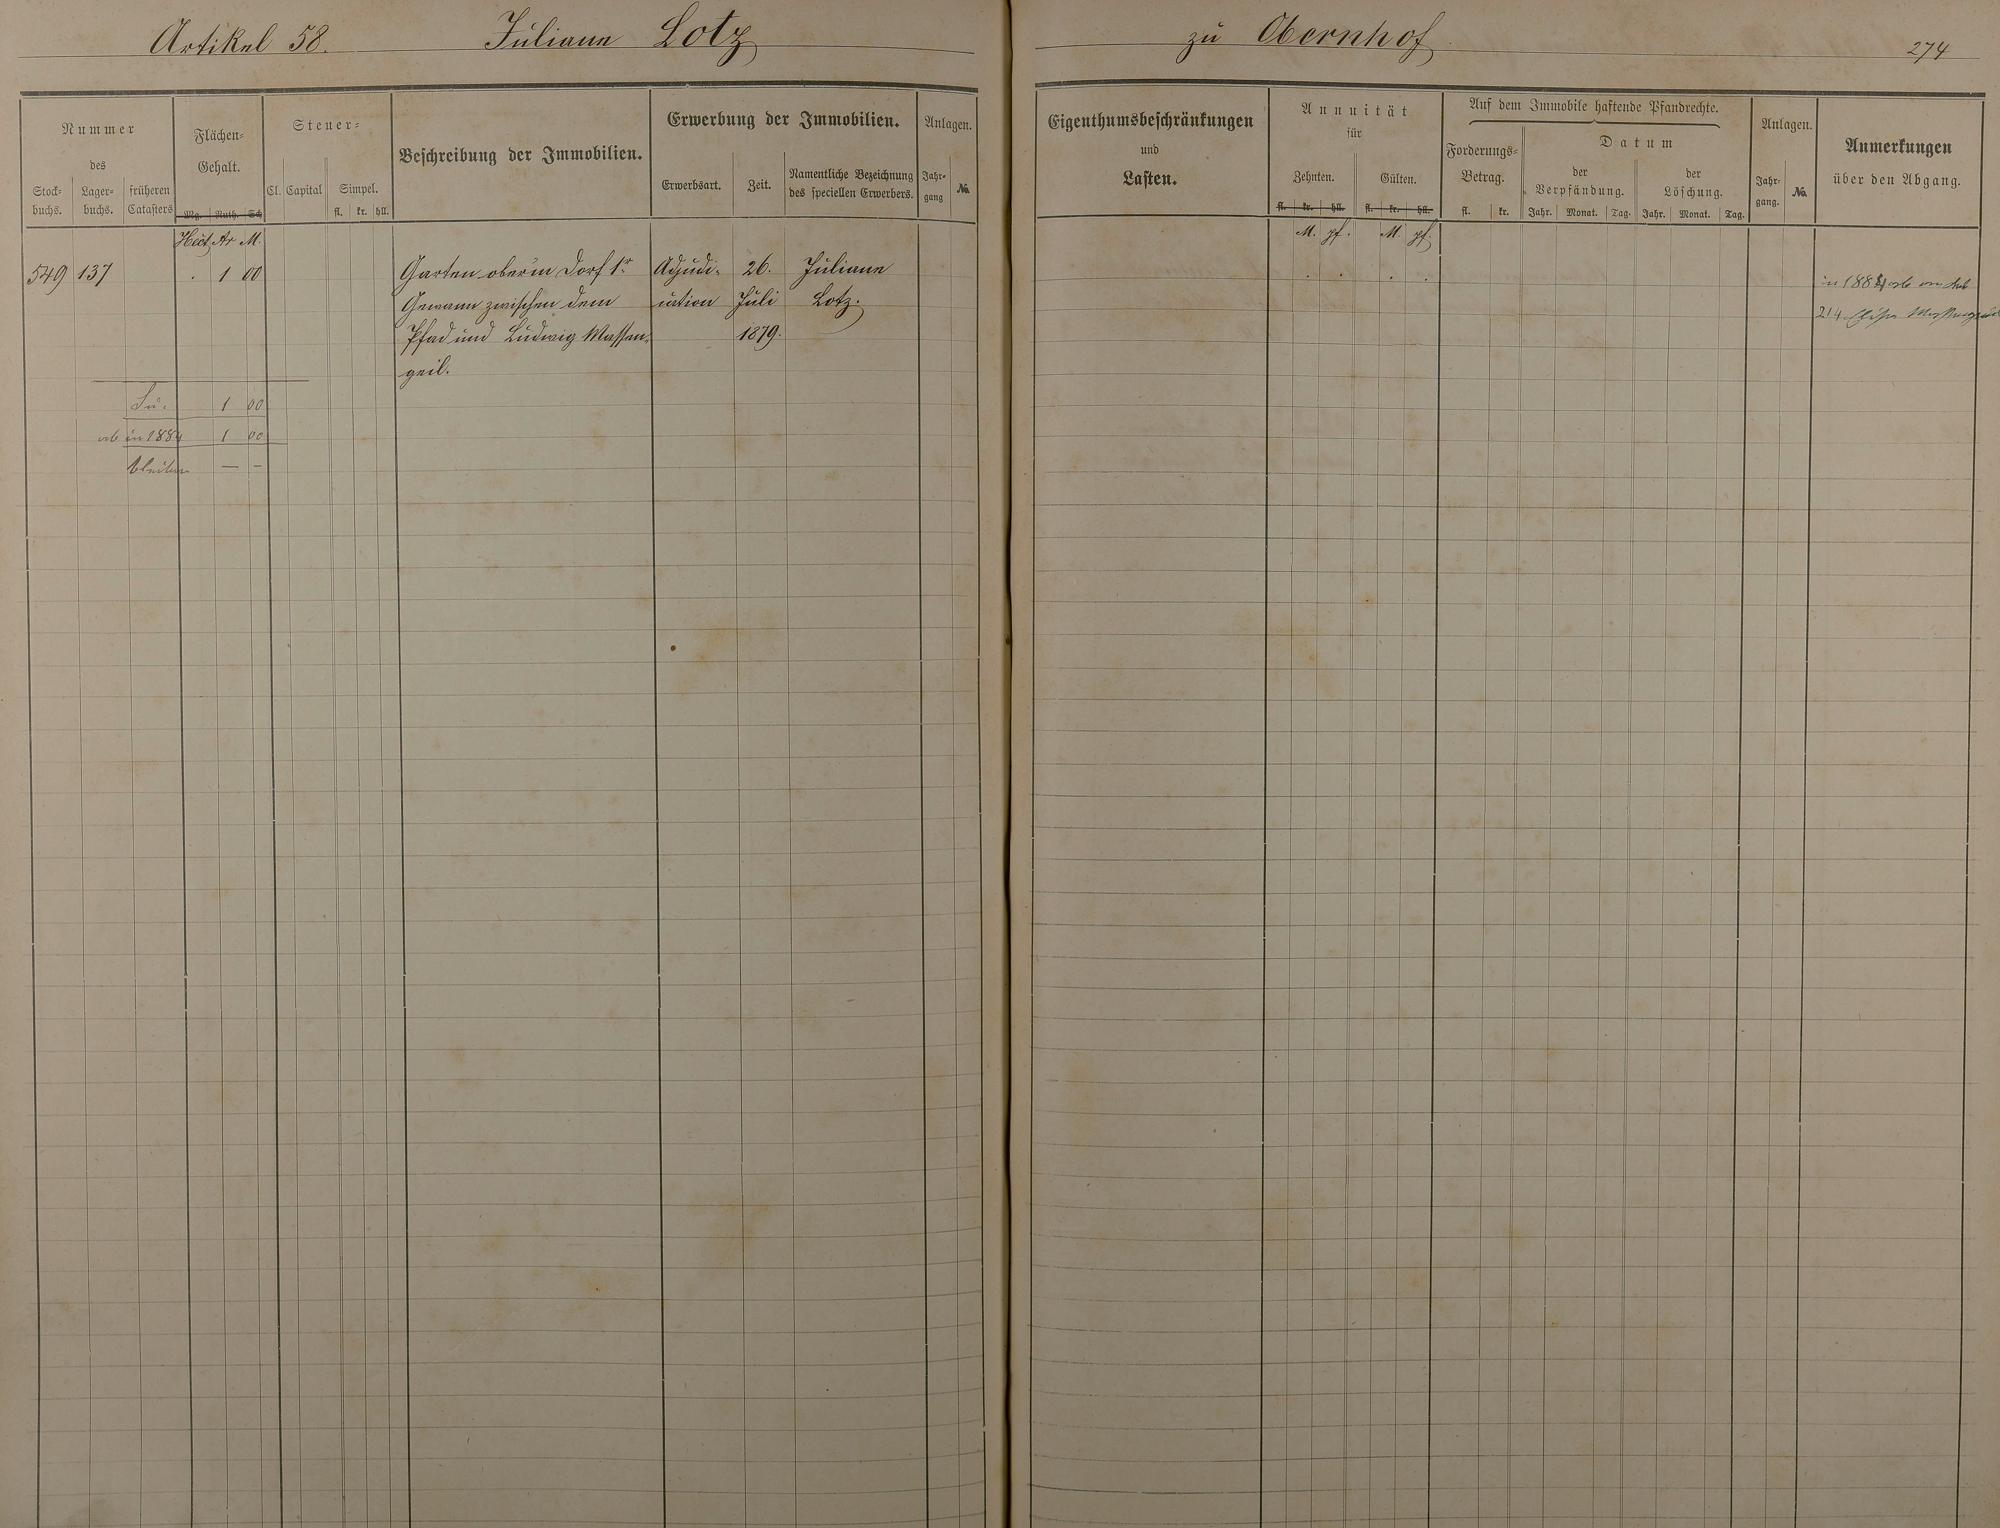 Artikel 58. Juliane Lotz zu Obernhof 274
Nummer
des
Stock-
buchs.
Lager-
buchs.
früheren
Catasters
Flächen-
Gehalt.
Mg. Ruth. Sch
Steuer-
Cl. Capital
Simpel.
fl. kr. hll.
Beschreibung der Immobilien.
Erwerbung der Immobilien.
Erwerbsart.
Zeit.
Namentliche Bezeichnung
des speciellen Erwerbers.
Anlagen.
Jahr-
gang
No.
Eigenthumsbeschränkungen
und
Lasten.
Annuität
für
Zehnten.
fl. kr. hll.
Gülten.
fl. kr. hll.
Auf dem Immobile haftende Pfandrechte.
Forderungs-
Betrag.
fl. kr.
Datum
der
Verpfändung.
Jahr. Monat. Tag.
der
Löschung.
Jahr. Monat. Tag.
Anlagen.
Jahr-
gang.
No.
Anmerkungen
über den Abgang.
Hect Ar M.
M. pf. M. pf.
549 137 . 1 00 Garten oberm Dorf 1r Adjudi- 26. Juliane
Gewann zwischen dem cation Juli Lotz.
Pfad und Ludwig Massen- 1879.
geil.
in 1884 ab an Art
214
Su. 1 00
ab in 1884 1 00
bleiben — –